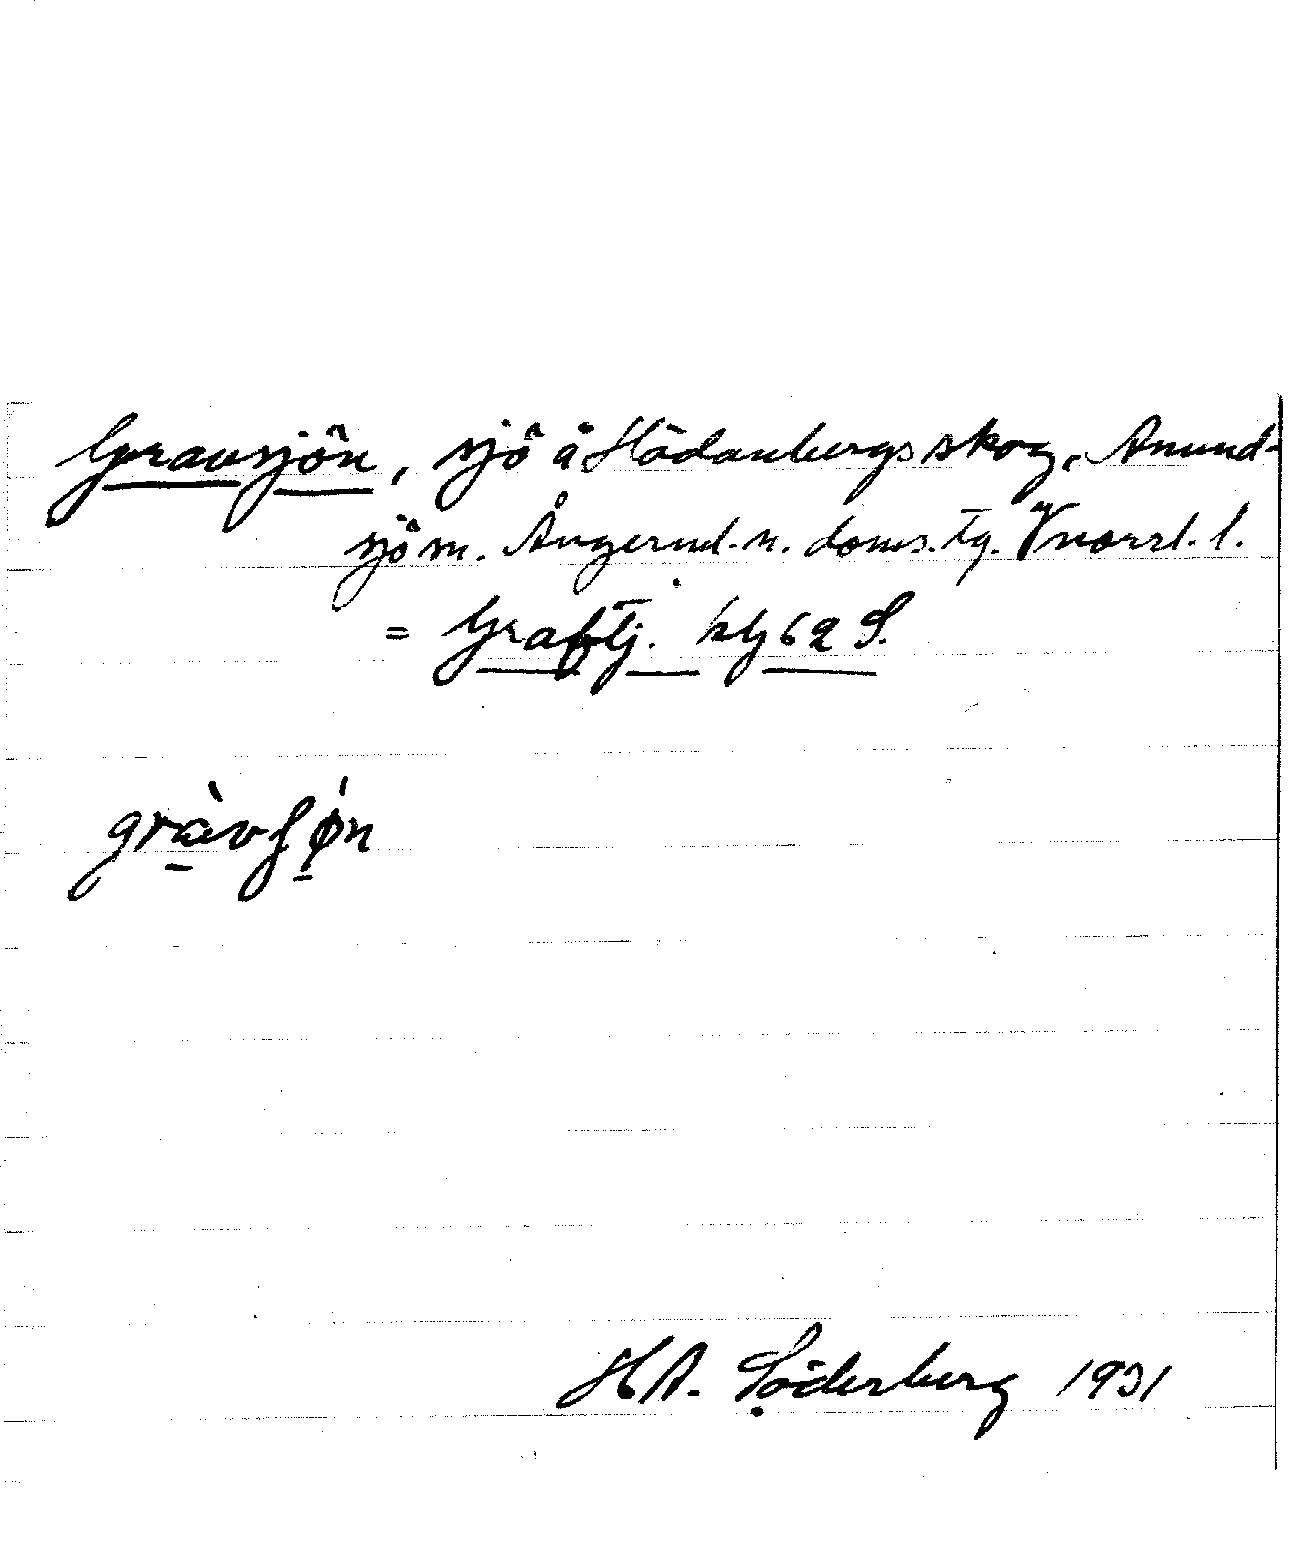 Gravsjön, sjö å Hädanbergs skog, Anund-
sjö sn. Ångerml. n. doms. tg. Vnorrl. l.
= Graftj. blj 62 S.
gràvʃǿn
H A. Söderberg 1931